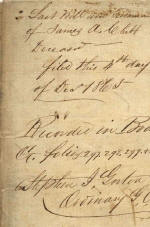 Last Will and
of James A. Clitt
Deceased
filed this 4th day
of Decr 1865
Recorded in Book
folios 297, 298, 299,
Stephen J. Gorton
Ordinary G C